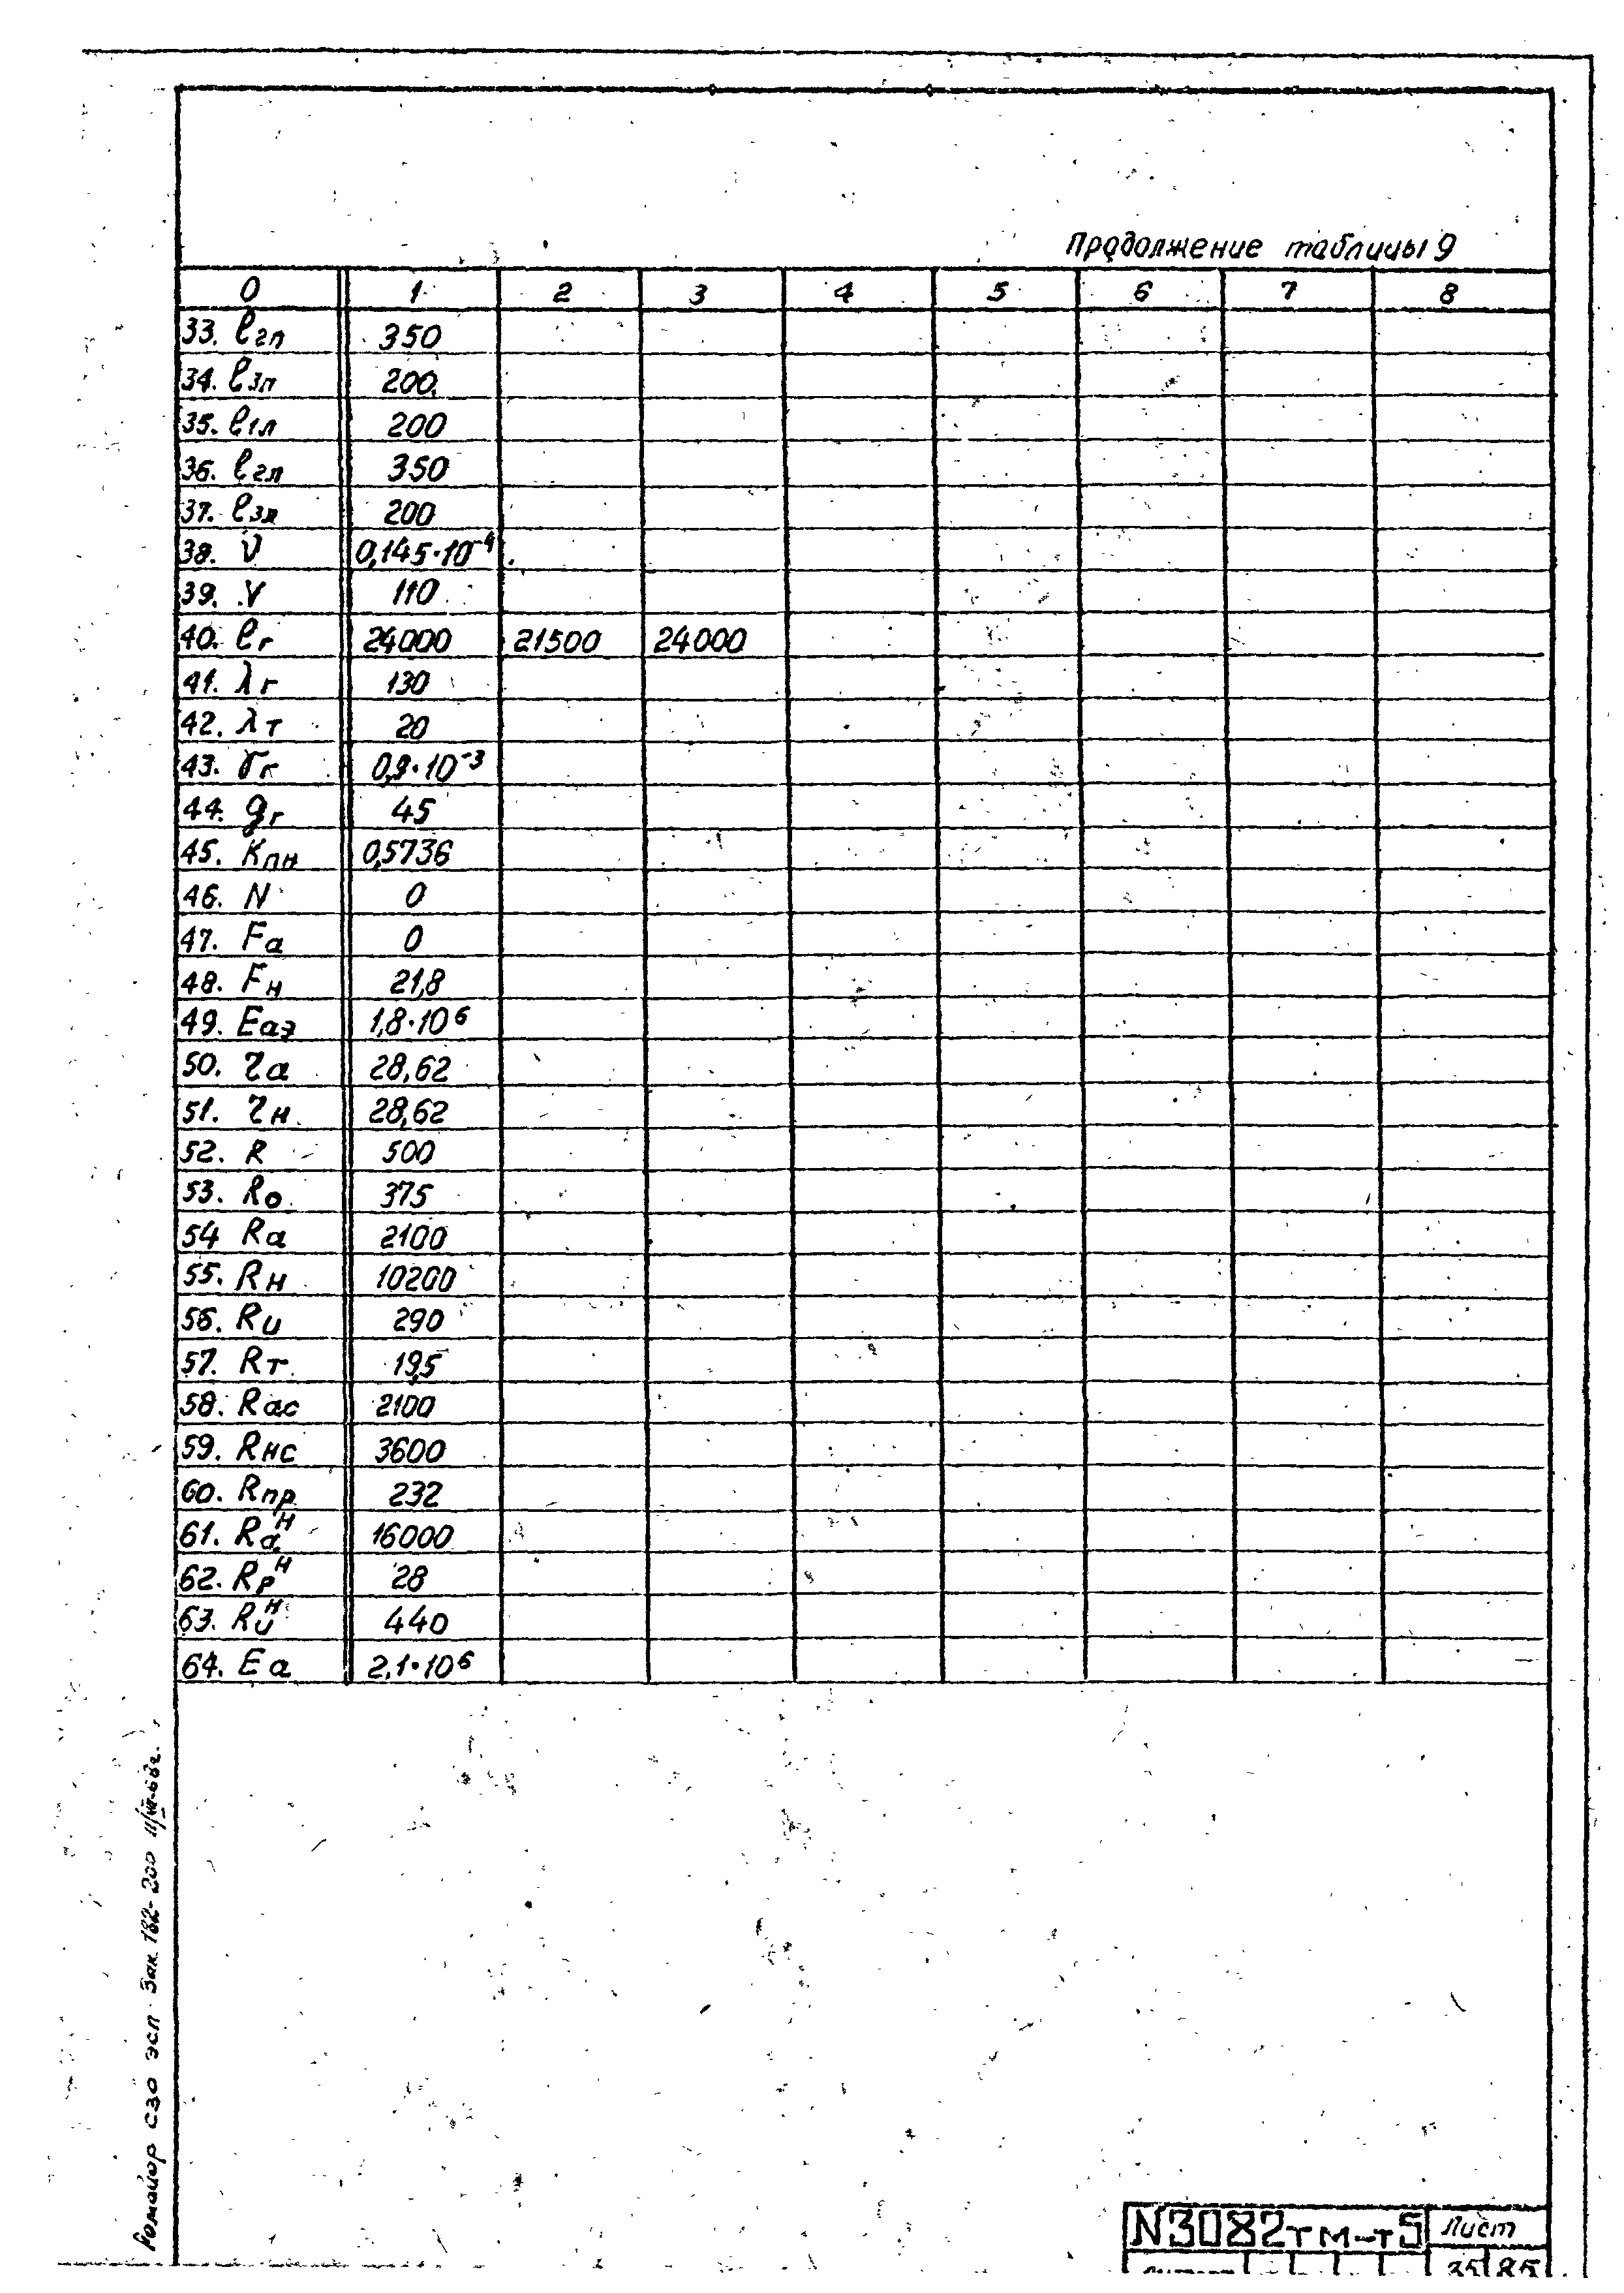 Продолжение таблицы 9
0 1 2 3 4 5 6 7 8
33. ℓ2п 350
34. ℓ3п 200
35. ℓ1л 200
36. ℓ2л 350
37. ℓ3л 200
38. ν 0,145·10⁻⁴
39. V 110
40. ℓг 24000 21500 24000
41. λг 130
42. λт 20
43. γг 0,9·10⁻³
44. gг 45
45. Kпн 0,5736
46. N 0
47. Fа 0
48. Fн 21,8
49. Eаэ 1,8·10⁶
50. τа 28,62
51. τн 28,62
52. R 500
53. Rо 375
54 Rа 2100
55. Rн 10200
56. Rи 290
57. Rт 19,5
58. Rас 2100
59. Rнс 3600
60. Rпр 232
61. Rаᴴ 16000
62. Rрᴴ 28
63. Rиᴴ 440
64. Eа 2,1·10⁶
Ромайор СЗО ЭСП Зак. 182-200 11/VII-68г.
N3082тм-т5 Лист
35 85